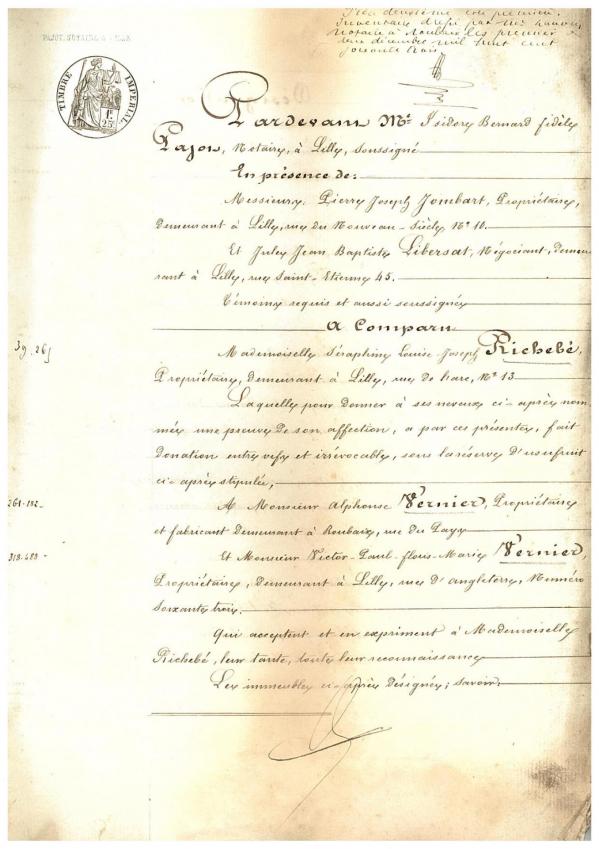 PAJOT, NOTAIRE A LILLE
premier.
Inventaire dressé par Me
notaire à Roubaix les premier &
décembre mil huit cent
soixante trois
TIMBRE IMPERIAL
1F.
25C.
Pardevant Me Isidore Bernard fidèle
Pajot, Notaire, à Lille, soussigné
En présence de:
Messieurs Pierre Joseph Jombart, Propriétaire,
demeurant à Lille, rue du Nouveau-Siècle No 10.
Et Jules Jean Baptiste Libersat, Négociant, demeu
rant à Lille, rue Saint-Etienne 45.
Témoins requis et aussi soussignés
A Comparu
39.26
Mademoiselle Séraphine Louise Joseph Richebé,
Propriétaire, demeurant à Lille, rue de No 13
Laquelle pour donner à ses neveux ci-après nom
més une preuve de son affection, a par ces présentes, fait
donation entre vifs et irrévocable, sous la réserve d'usufruit
ci-après stipulée,
261-182-
A Monsieur Alphonse Vernier, Propriétaire
et fabricant demeurant à Roubaix, rue du Pays
318.488-
Et Monsieur Victor-Paul-flous-Marie Vernier,
Propriétaire, demeurant à Lille, rue d'angleterre, Numéro
soixante trois.
Qui acceptent et en expriment à Mademoiselle
Richebé, leur tante, toute leur reconnaissance
Les immeubles ci-après désignés; savoir: